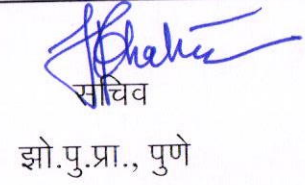 सचिव
झो.पु.प्रा., पुणे